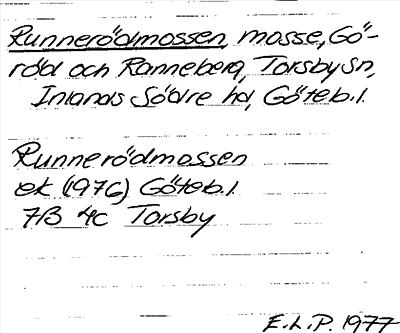 Runnerödmossen, mosse, Gö-
röd och Ranneberg, Torsby sn,
Inlands Södre hd, Göteb. l.
Runnerödmossen
ek (1976) Göteb. l.
7B 4c Torsby
E.L.P. 1977